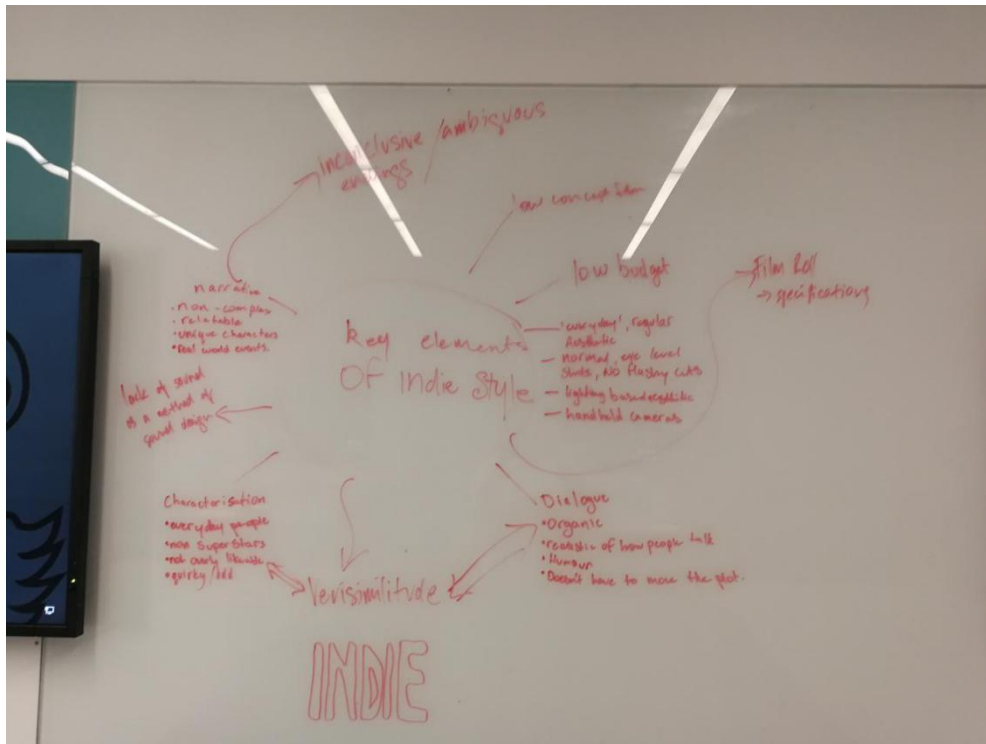 inconclusive / ambiguous
endings
low concept film
low budget
Film Roll
→ specifications
narrative
• non-complex
• relatable
• unique characters
• real world events.
key elements
OF Indie Style
- 'everyday', regular
Aesthetic
- normal, eye level
shots, NO flashy cuts
- lighting based aesthetic
- handheld cameras
lack of sound
as a method of
sound design
Characterisation
• everyday people
• non Superstars
• not overly likeable
• quirky/odd
Dialogue
• Organic
• realistic of how people talk
• Humour
• Doesn't have to move the plot.
Verisimilitude
INDIE